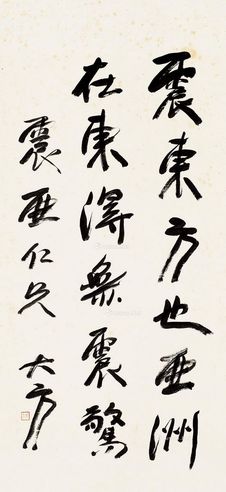 震東方也亞洲
在東得無震驚
震亞仁兄
大方